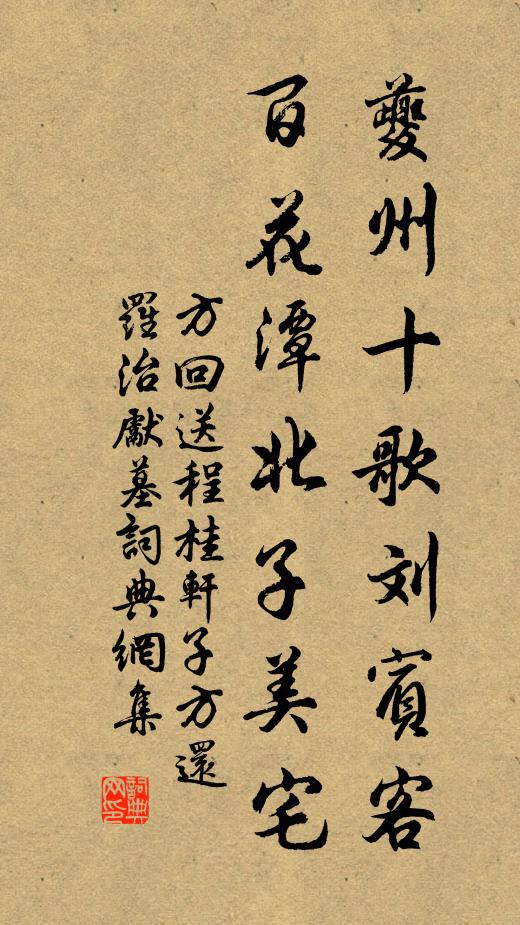 夔州十歌刘賓客
百花潭北子美宅
方回送程桂軒子方還
羅治獻墓詞典網集
詞典網印